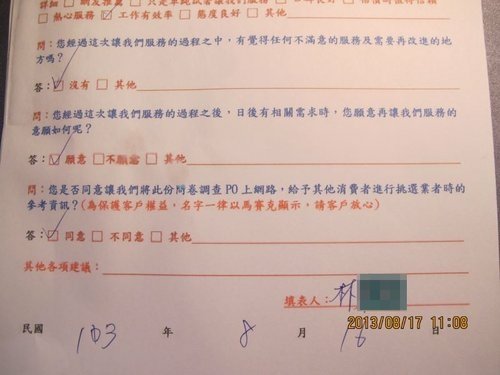 詳細 □ 網友推薦 □ 只是單純試著讓我們服務 □ 口碑良好 □
□ 熱心服務 ☑ 工作有效率 □ 態度良好 □ 其他
問：您經過這次讓我們服務的過程之中，有覺得任何不滿意的服務及需要再改進的地
方嗎？
答：☑ 沒有 □ 其他
問：您經過這次讓我們服務的過程之後，日後有相關需求時，您願意再讓我們服務的
意願如何呢？
答：☑ 願意 □不願意 □ 其他
問：您是否同意讓我們將此份問卷調查 PO 上網路，給予其他消費者進行挑選業者時的
參考資訊？(為保護客戶權益，名字一律以馬賽克顯示，請客戶放心)
答：☑ 同意 □ 不同意 □ 其他
其他各項建議：
填表人：林
2013/08/17 11:08
民國 103 年 8 月 16 日